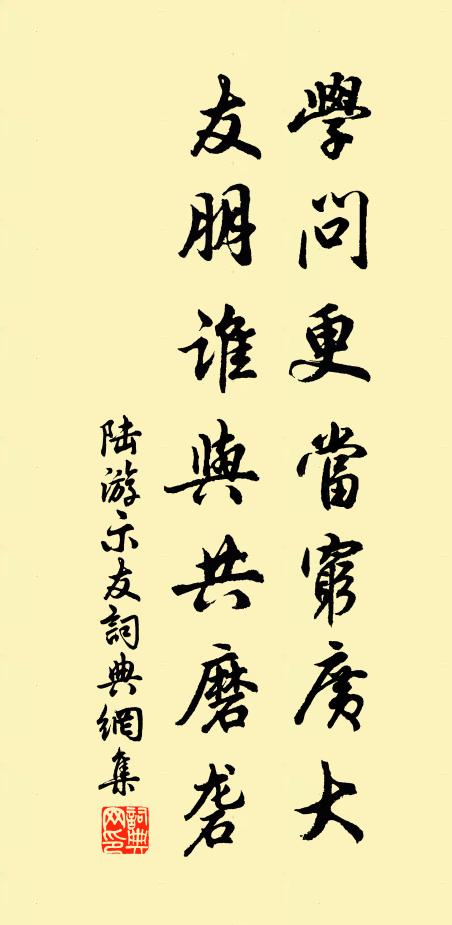 學問更當窮廣大
友朋誰與共磨砻
陆游示友詞典網集
詞典网印